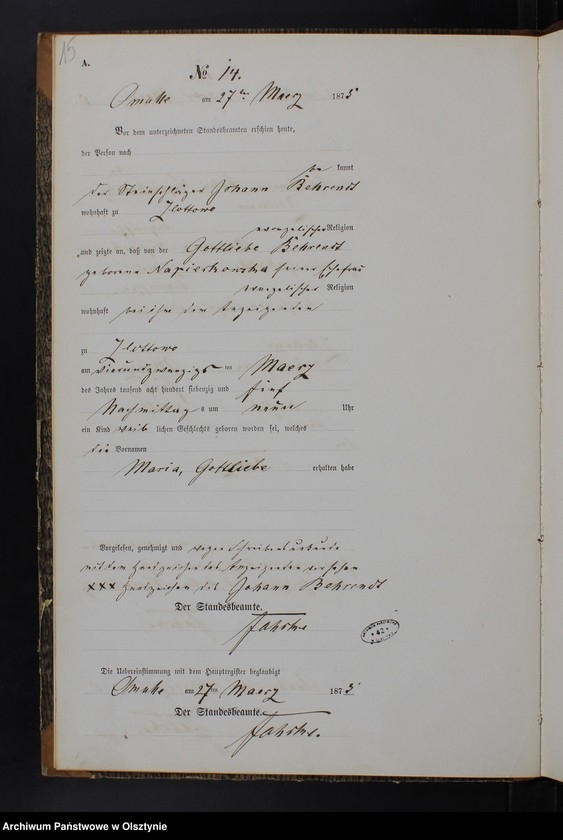 15
A.
№ 14.
Omulle am 27ten Maerz 1875
Vor dem unterzeichneten Standesbeamten erschien heute,
der Person nach
be kannt
der Steinschläger Johann Behrendt
wohnhaft zu Zlottowo
evangelischer Religion
und zeigte an, daß von der Gottliebe Behrendt
geborene Napierkowska seiner Ehefrau
evangelischer Religion
wohnhaft bei ihm dem Anzeigenden
zu Zlottowo
am vierundzwanzigsten Maerz
des Jahres tausend acht hundert siebenzig und fünf
Nachmittag s um neun Uhr
ein Kind weib lichen Geschlechts geboren worden sei, welches
die Vornamen
Maria, Gottliebe erhalten habe
Vorgelesen, genehmigt und wegen Schreibensunkunde
mit dem Handzeichen des Anzeigenden versehen
XXX Handzeichen des Johann Behrendt
Der Standesbeamte.
Die Uebereinstimmung mit dem Hauptregister beglaubigt
Omulle am 27ten Maerz 1875
Der Standesbeamte.
Archiwum Państwowe w Olsztynie